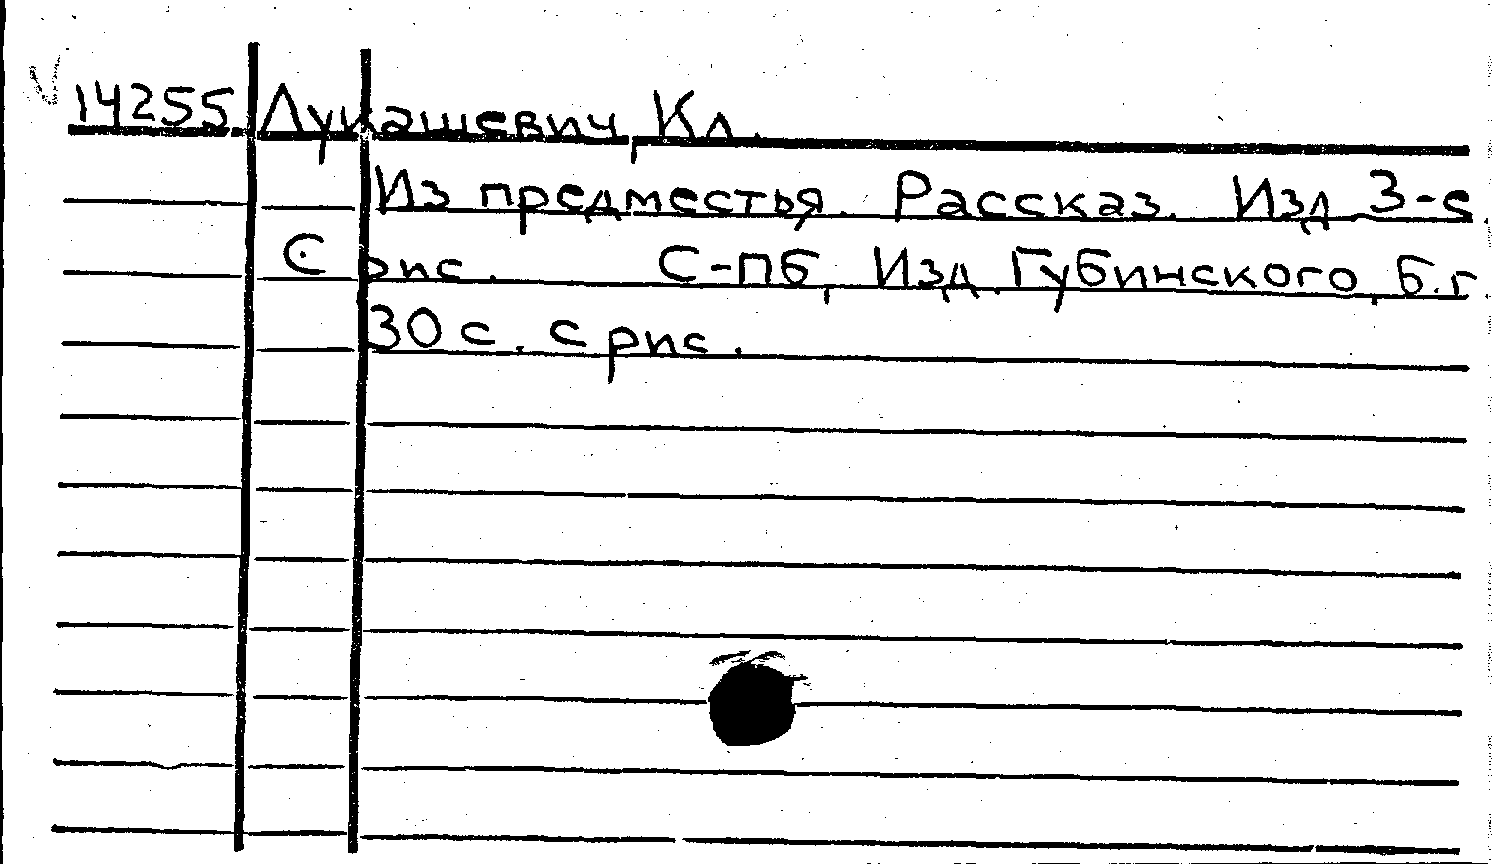 14255 Лукашевич, Кл.
Из предместья. Рассказ. Изд 3-е.
С рис. С-пб, Изд. Губинского, б.г.
30 с. с рис.